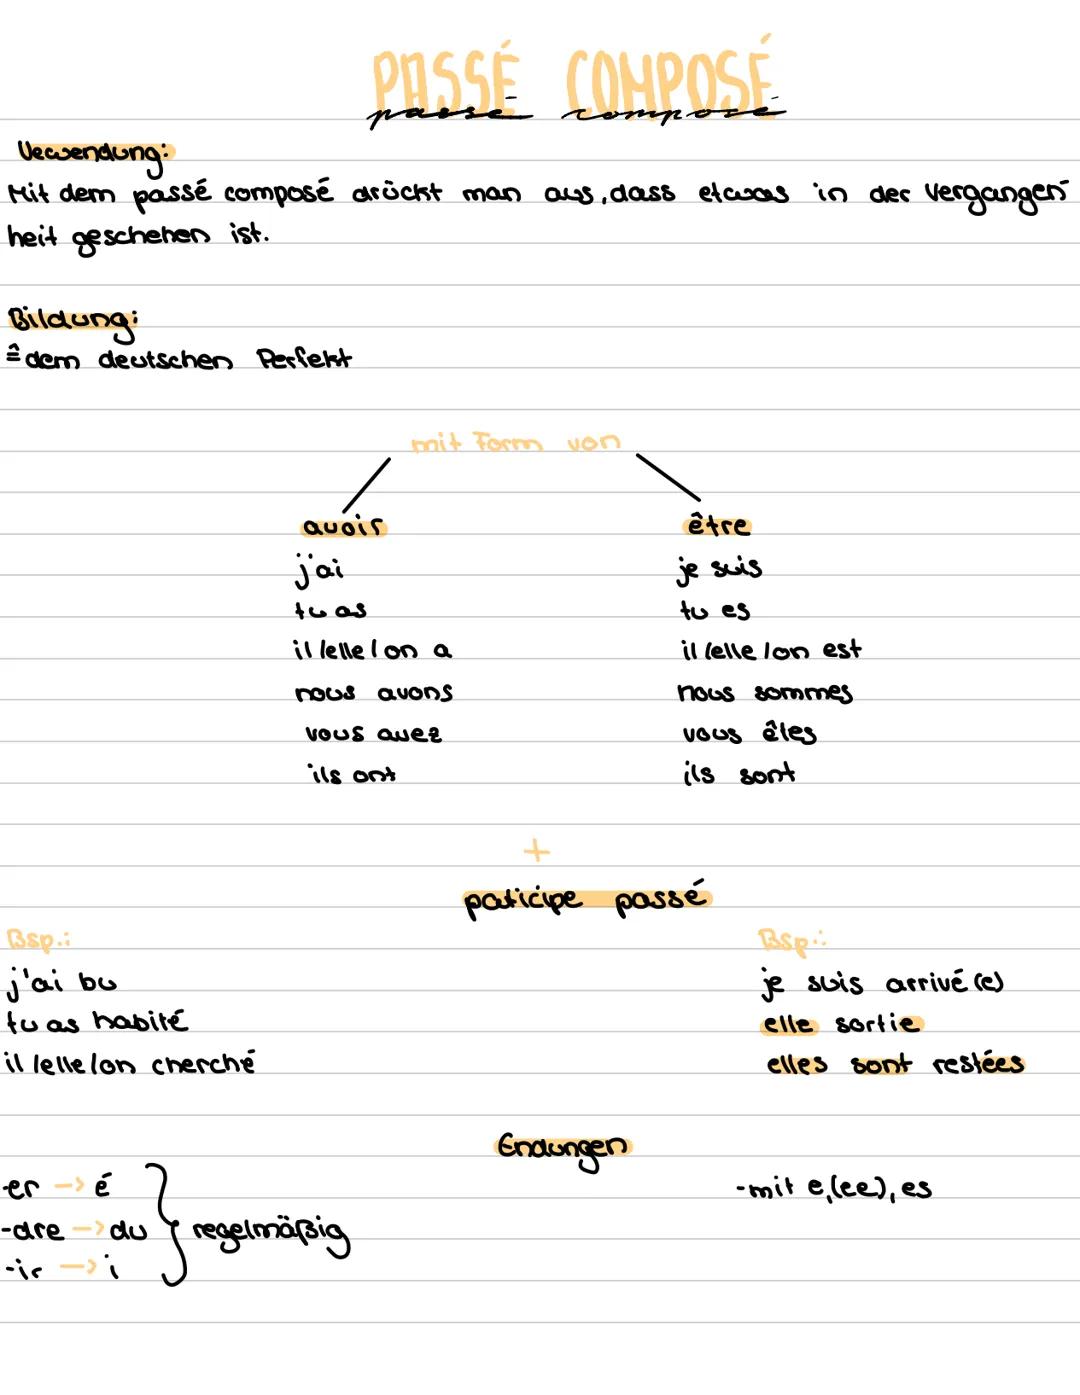 PASSÉ COMPOSÉ
passé composé
Verwendung:
Mit dem passé composé drückt man aus, dass etwas in der Vergangen
heit geschehen ist.
Bildung:
≙ dem deutschen Perfekt
mit Form von
avoir être
j'ai je suis
tu as tu es
il/elle/on a il/elle/on est
nous avons nous sommes
vous avez vous êtes
ils ont ils sont
+
paticipe passé
Bsp.: Bsp.:
j'ai bu je suis arrivé(e)
tu as habité elle sortie
il/elle/on cherché elles sont restées
Endungen
-er -> é -mit e,(ee), es
-dre -> du } regelmäßig
-ir -> i